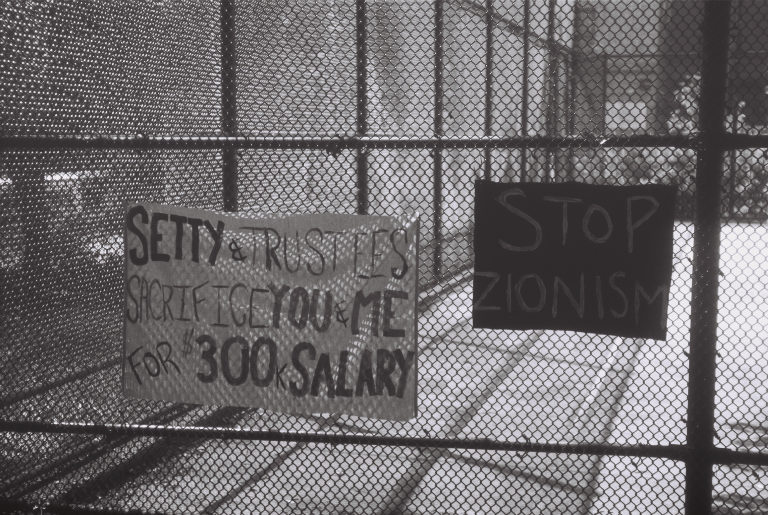 SETTY & TRUSTEES
SACRIFICE YOU & ME
FOR $300K SALARY
STOP
ZIONISM